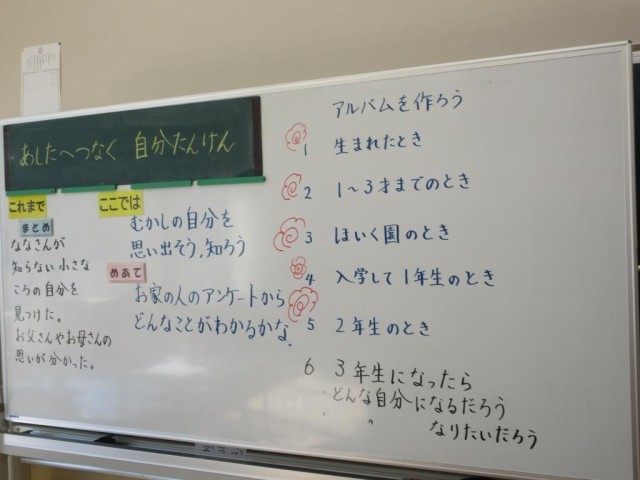 あしたへつなぐ 自分たんけん
これまで
まとめ
ななさんが
知らない小さな
ころの自分を
見つけた。
お父さんやお母さんの
思いが分かった。
ここでは
むかしの自分を
思い出そう,知ろう
めあて
お家の人のアンケートから
どんなことがわかるかな.
アルバムを作ろう
1 生まれたとき
2 1~3才までのとき
3 ほいく園のとき
4 入学して1年生のとき
5 2年生のとき
6 3年生になったら
どんな自分になるだろう
〃 なりたいだろう